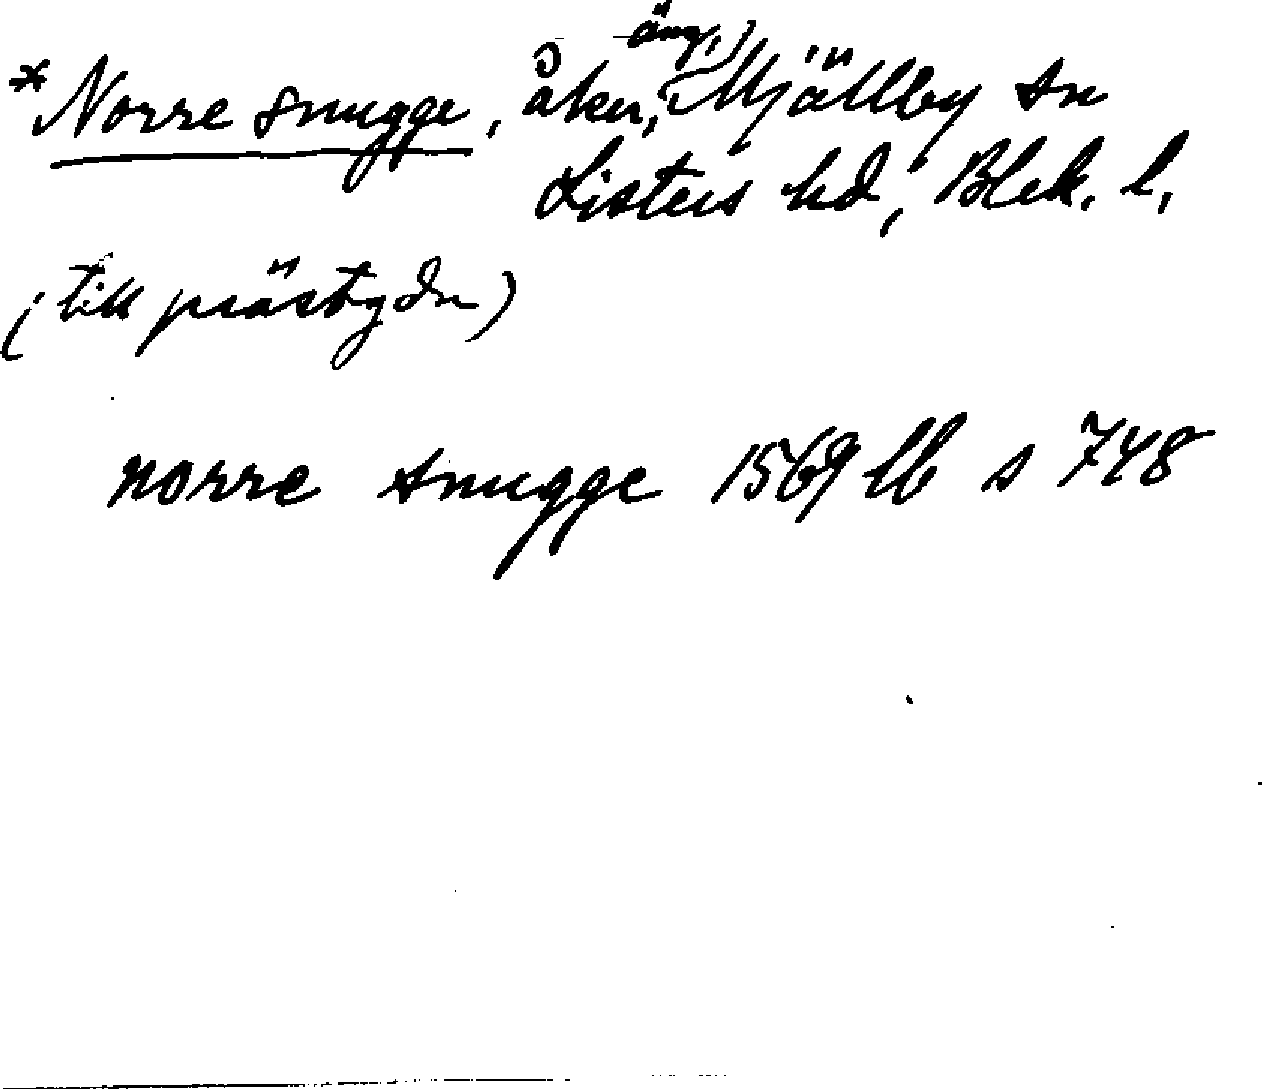 *Norre snugge, åker, äng, Mjällby sn
Listers hd, Blek. l.
(till prästgdn)
norre snugge 1569 lb s 748